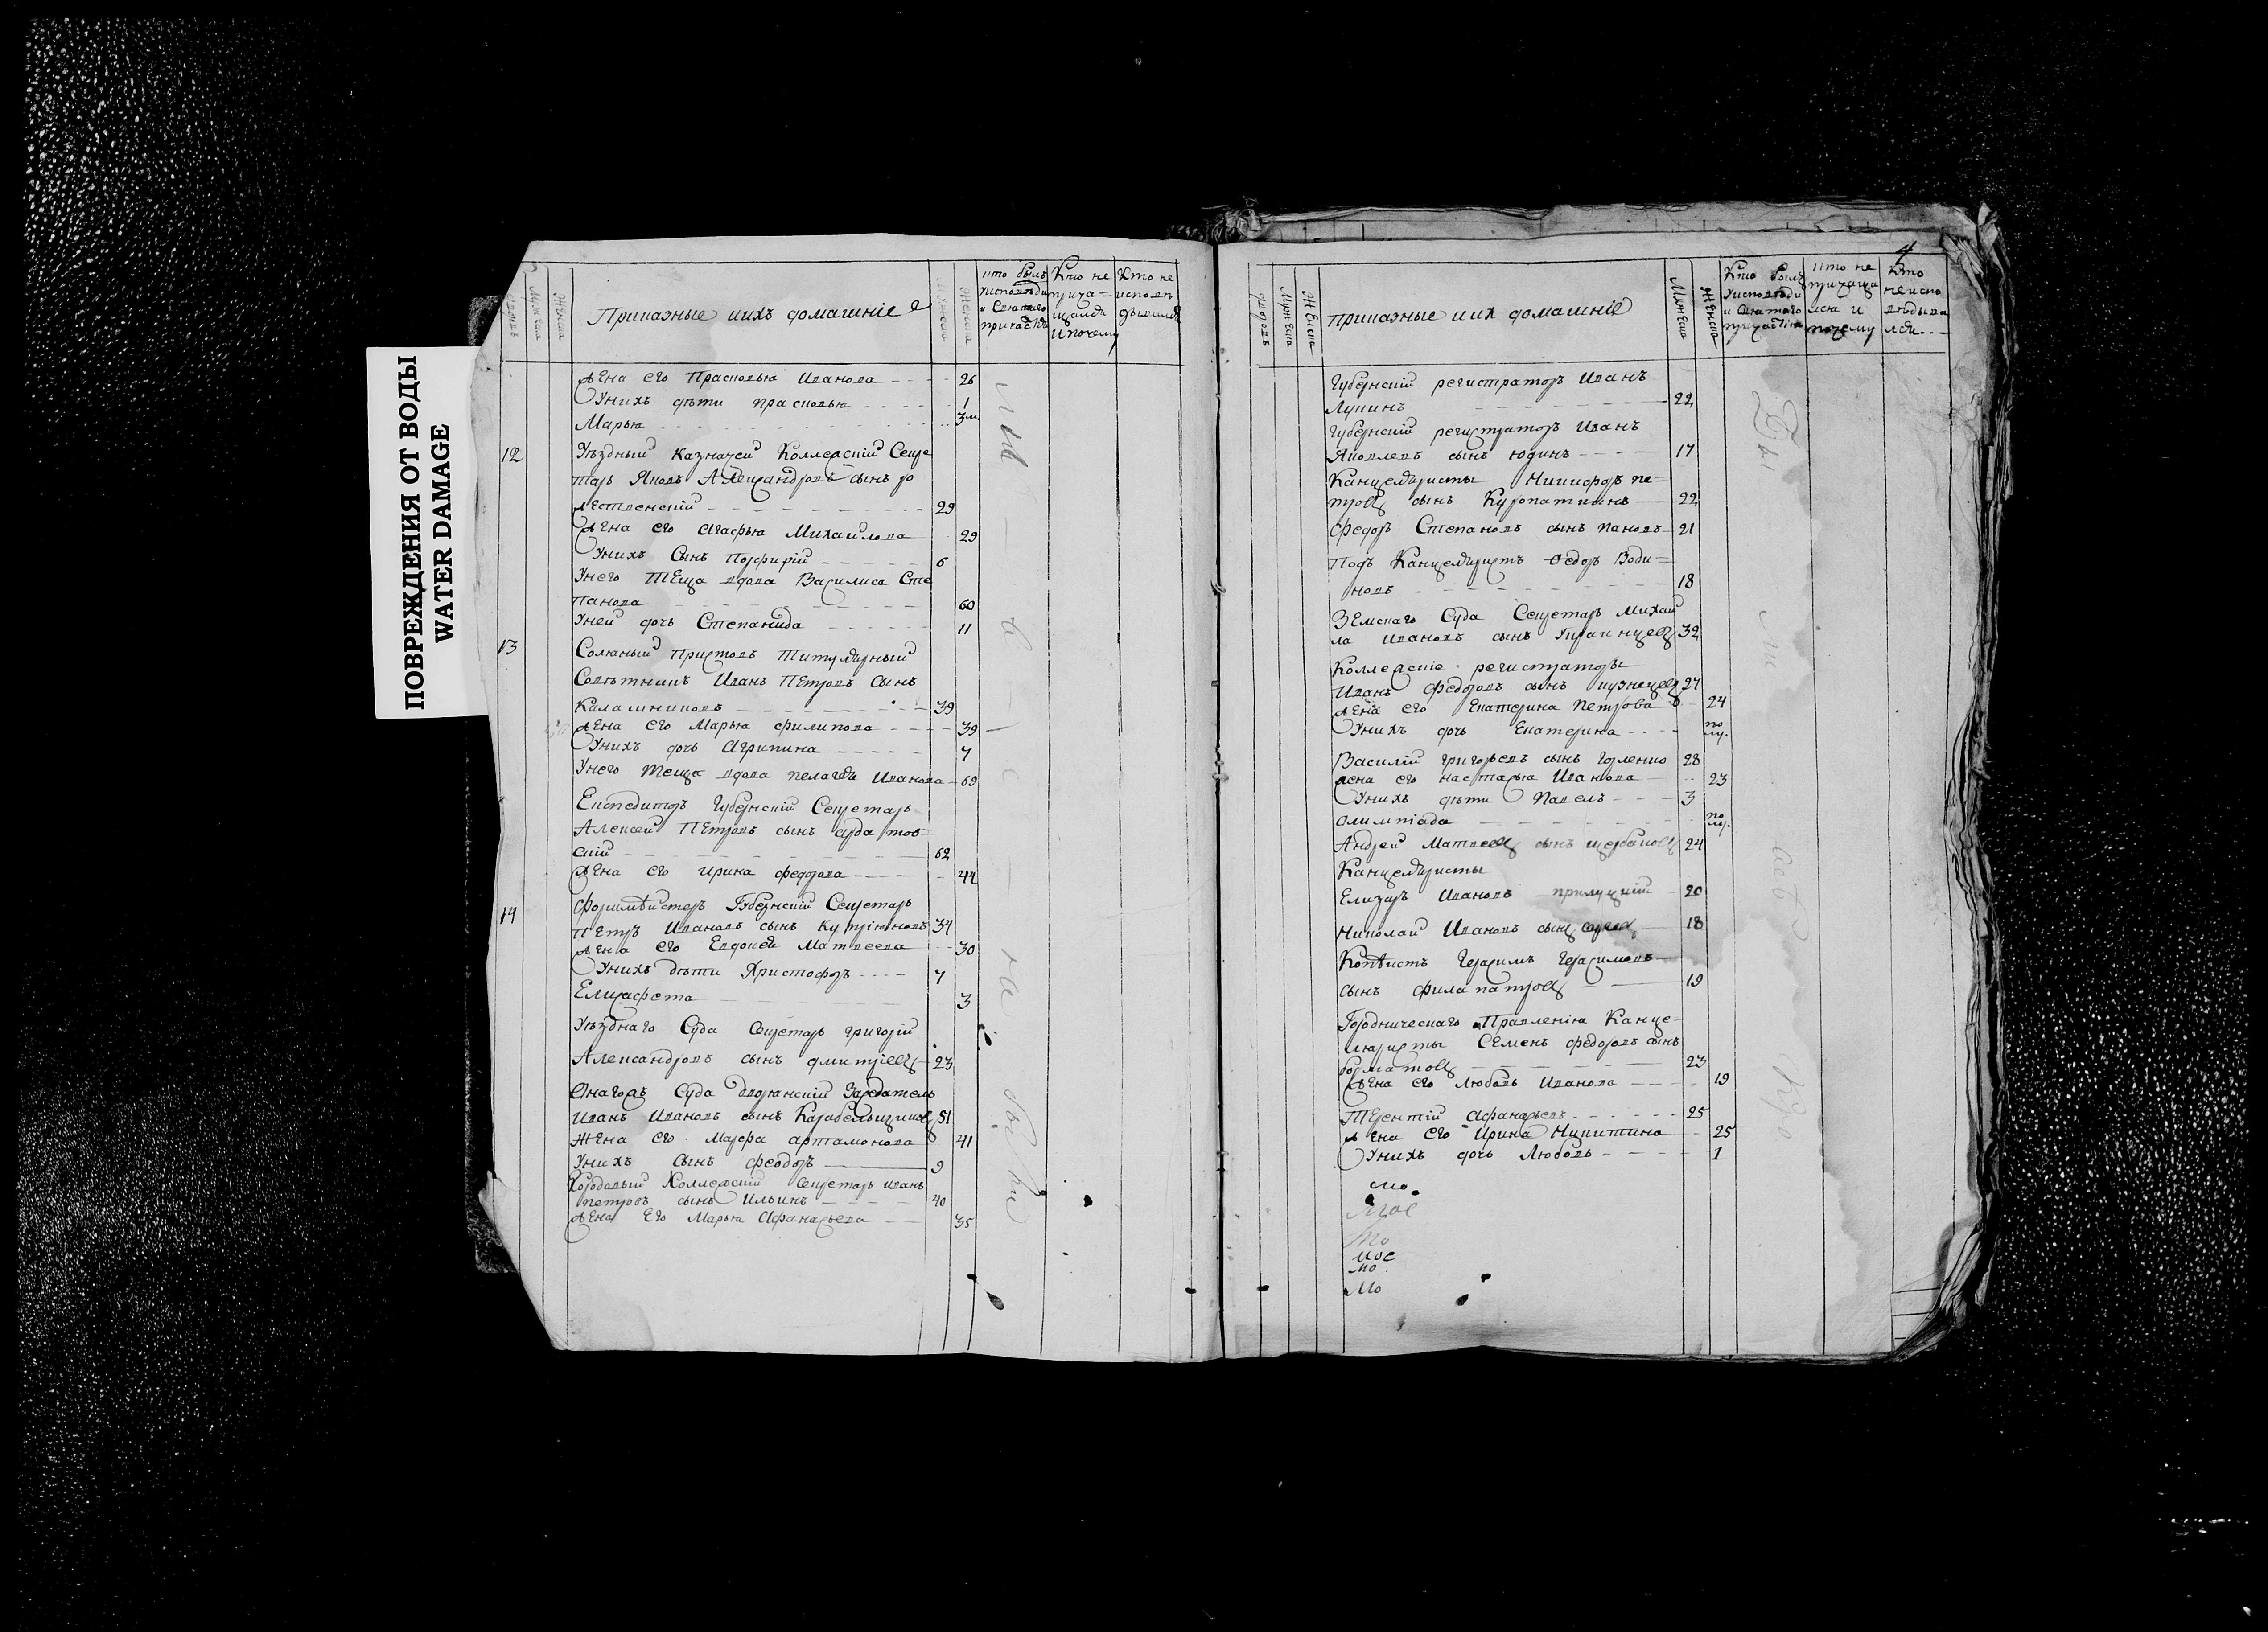 ПОВРЕЖДЕНИЯ ОТ ВОДЫ
WATER DAMAGE
Приказные ихъ домашніе
Мужеска
Женска
кто былъ у исповѣди и святаго причастія
Кто не причащался и почему
Кто не исповѣдывался
Жена его Прасковья Иванова 26
У нихъ дѣти прасковья 1
Марья 3
12 Уѣздный казначей Коллежскій Секре
тарь Яковъ Александровъ сынъ ро
жественскій 29
Жена его Агафья Михаилова 29
У нихъ Сынъ Порфирій 6
У него Теща вдова Василиса Сте
панова 60
У ней дочь Степанида 11
13 Соляный Приставъ Титулярный
Советникъ Иванъ Петровъ Сынъ
Калашниковъ 39
Жена его Марья филипова 39
У нихъ дочь Агрипина 7
У него теща вдова пелагея Иванова 69
Експедиторъ Губернский Секретарь
Алексей Петровъ сынъ арда тов=
ский 62
Жена его ирина федорова 44
14 Губернский Секретарь
Петръ Ивановъ сынъ 34
Жена его Евдокея Матвеева 30
У нихъ дѣти Христофоръ 7
Елисафета 3
Уѣзднаго Суда Секретарь григорій
Александровъ сынъ дмитріевъ 23
Онагожъ Суда дворянский Заседатель
Иванъ Ивановъ сынъ 51
Жена его Марфа артамонова 41
У нихъ сынъ феодоръ 9
Коллежский Секретарь иванъ
петровъ сынъ Ильинъ 40
Жена Его Марья Афанасьева 35
4
Мужеска
Женска
приказные и их домашніе
Мужеска
Женска
Кто былъ у исповѣди и святаго причастія
кто не причаща лся и почему
Кто не испо вѣдыва лся
Губернский регистраторъ Иванъ
Лукинъ 22
Губернский регистраторъ Иванъ
Яковлевъ сынъ юдинъ 17
Канцеляристы Никифоръ пе=
тровъ сынъ Куропаткинъ 22
федоръ Степановъ сынъ пановъ 21
Подъ Канцеляристъ Ѳедоръ Води=
ковъ 18
Земскаго Суда Секретарь Михаи
ла Ивановъ сынъ Украинцевъ 32
Коллежские регистраторы
Иванъ федоровъ сынъ кузнецовъ 27
Жена его Екатерина Петрова 24
У нихъ дочь Екатерина
Василій григорьевъ сынъ 28
жена его настасья Иванова 23
У нихъ дѣти Павелъ 3
олимпіада
Андрей Матвеевъ сынъ щербаковъ 24
Канцеляристы
Елизаръ Ивановъ прилуцкий 20
Николай Ивановъ сынъ 18
Копѣистъ Герасимъ Герасимовъ
сынъ филапатровъ 19
Городническаго Правления Канце=
ляристы Семенъ федоровъ сынъ
23
Жена его Любовь Иванова 19
Терентій Афанасьевъ 25
Жена его Ирина Никитина 25
У нихъ дочь Любовь 1
мо
мое
мо
мое
мо
мо